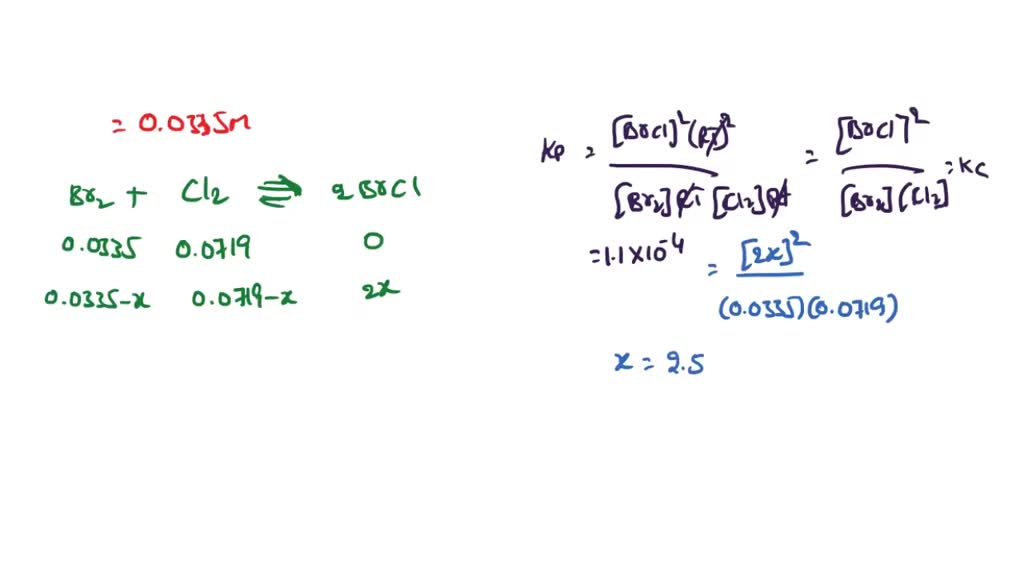 = 0.0335M
Br2 + Cl2 ⇌ 2BrCl
0.0335 0.0719 0
0.0335-x 0.0719-x 2x
Kp = [BrCl]²(RT)² / [Br2]RT [Cl2]RT = [BrCl]² / [Br2][Cl2] = Kc
= 1.1×10⁻⁴ = [2x]² / (0.0335)(0.0719)
x = 2.5